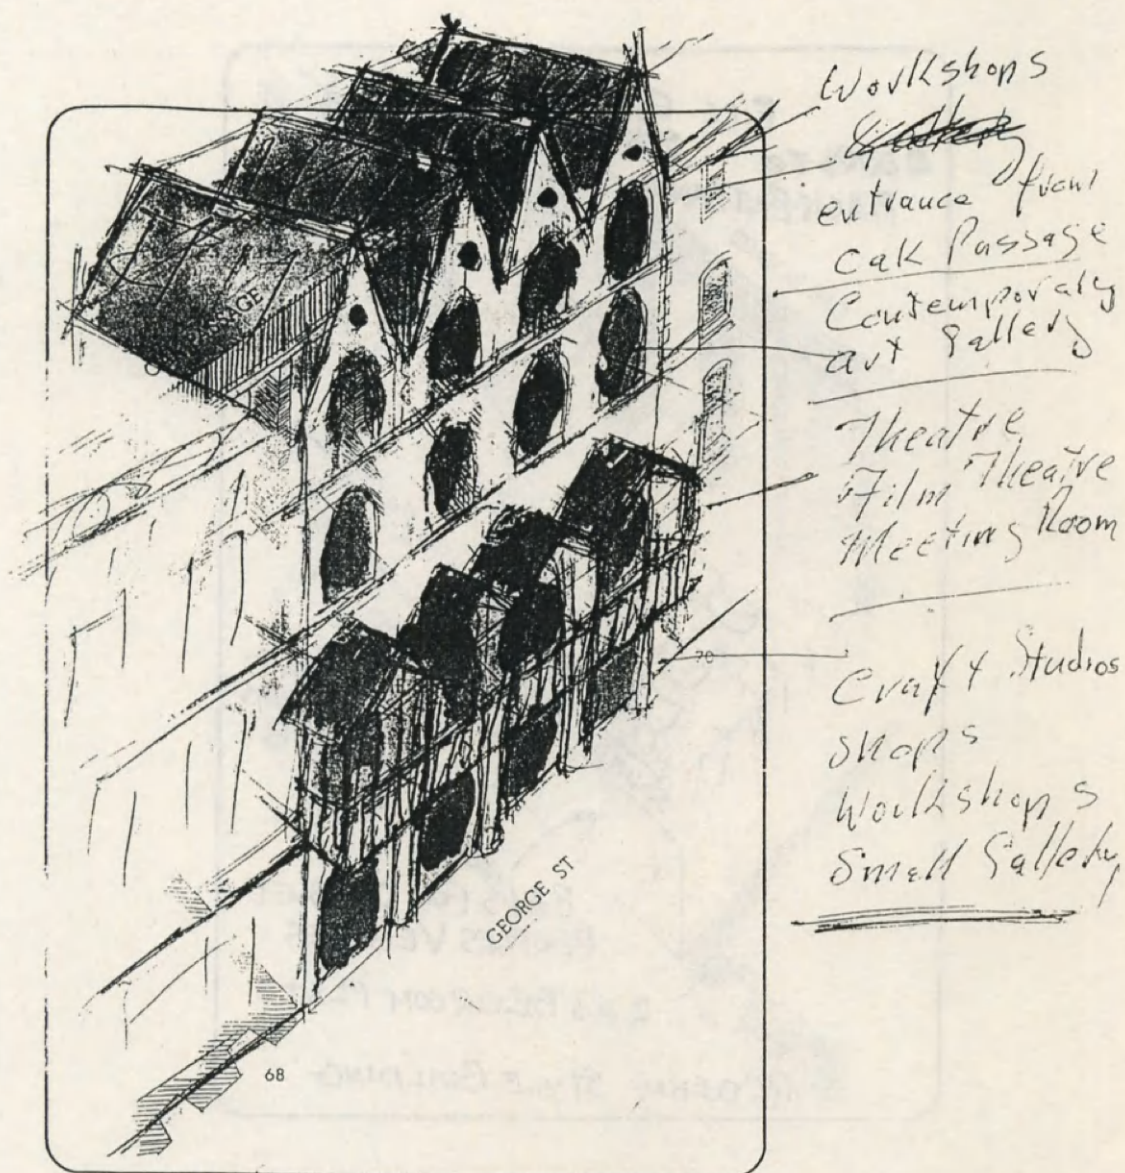 Workshops
entrance from
Oak Passage
Contemporary
art Gallery
Theatre
Film Theatre
Meeting Room
Craft Studios
Shops
Workshops
Small Gallery
PASSAGE
GEORGE ST
70
68